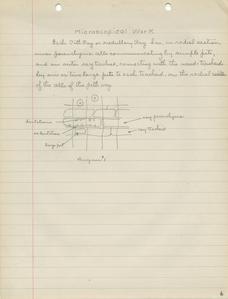 Microscopical Work
Each Pith Ray or medullary Ray has, in radial section,
inner parenchyma cells communicating by simple pits,
and an outer ray tracheid, connecting with the wood-tracheids
by one or two large pits to each tracheid. On the radial walls
of the cells of the pith ray
dentations
ray parenchyma
ray tracheid
large pit